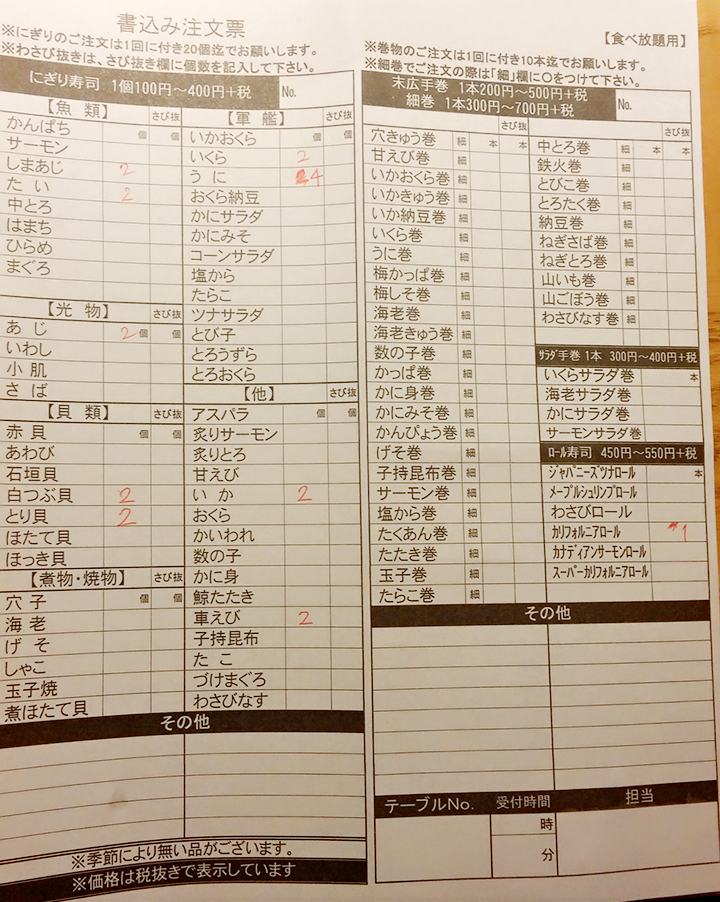 書込み注文票
※にぎりのご注文は1回に付き20個迄でお願いします。
※わさび抜きは、さび抜き欄に個数を記入して下さい。
にぎり寿司 1個100円～400円+税 No.
【魚 類】 さび抜
かんぱち 個 個
サーモン
しまあじ 2
たい 2
中とろ
はまち
ひらめ
まぐろ
【光 物】 さび抜
あじ 2 個 個
いわし
小肌
さば
【貝 類】 さび抜
赤貝 個 個
あわび
石垣貝
白つぶ貝 2
とり貝 2
ほたて貝
ほっき貝
【煮物・焼物】 さび抜
穴子 個 個
海老
げそ
しゃこ
玉子焼
煮ほたて貝
【軍 艦】 さび抜
いかおくら 個 個
いくら 2
うに 4
おくら納豆
かにサラダ
かにみそ
コーンサラダ
塩から
たらこ
ツナサラダ
とび子
とろうずら
とろおくら
【他】 さび抜
アスパラ 個 個
炙りサーモン
炙りとろ
甘えび
いか 2
おくら
かいわれ
数の子
かに身
鯨たたき
車えび 2
子持昆布
たこ
づけまぐろ
わさびなす
その他
※季節により無い品がございます。
※価格は税抜きで表示しています
【食べ放題用】
※巻物のご注文は1回に付き10本迄でお願いします。
※細巻でご注文の際は「細」欄に○をつけて下さい。
末広手巻 1本200円～500円+税
細巻 1本300円～700円+税 No.
さび抜
穴きゅう巻 細 本 本
甘えび巻 細
いかおくら巻 細
いかきゅう巻 細
いか納豆巻 細
いくら巻 細
うに巻 細
梅かっぱ巻 細
梅しそ巻 細
海老巻 細
海老きゅう巻 細
数の子巻 細
かっぱ巻 細
かに身巻 細
かにみそ巻 細
かんぴょう巻 細
げそ巻 細
子持昆布巻 細
サーモン巻 細
塩から巻 細
たくあん巻 細
たたき巻 細
玉子巻 細
たらこ巻 細
さび抜
中とろ巻 細 本 本
鉄火巻 細
とびこ巻 細
とろたく巻 細
納豆巻 細
ねぎさば巻 細
ねぎとろ巻 細
山いも巻 細
山ごぼう巻 細
わさびなす巻 細
サラダ手巻 1本 300円～400円+税
いくらサラダ巻 本
海老サラダ巻
かにサラダ巻
サーモンサラダ巻
ロール寿司 450円～550円+税
ジャパニーズツナロール 本
メープルシュリンプロール
わさびロール
カリフォルニアロール 1
カナディアンサーモンロール
スーパーカリフォルニアロール
その他
テーブルNo. 受付時間 担当
時
分